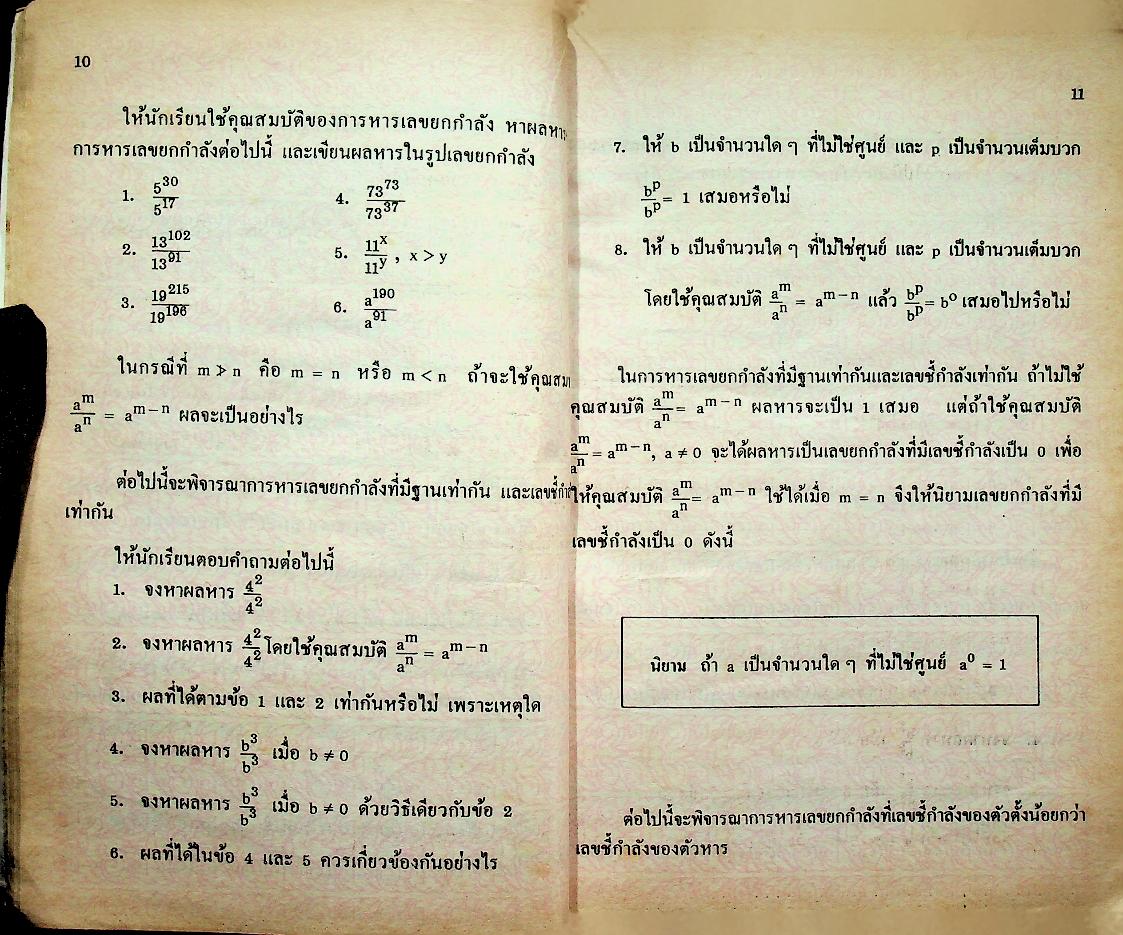 10
ให้นักเรียนใช้คุณสมบัติของการหารเลขยกกำลัง หาผลหาร
การหารเลขยกกำลังต่อไปนี้ และเขียนผลหารในรูปเลขยกกำลัง
1. 5^30/5^17 4. 73^73/73^37
2. 13^102/13^91 5. 11^x/11^y , x > y
3. 19^215/19^196 6. a^190/a^91
ในกรณีที่ m ≯ n คือ m = n หรือ m < n ถ้าจะใช้คุณสม
a^m/a^n = a^m-n ผลจะเป็นอย่างไร
ต่อไปนี้จะพิจารณาการหารเลขยกกำลังที่มีฐานเท่ากัน และเลขชี้กำ
เท่ากัน
ให้นักเรียนตอบคำถามต่อไปนี้
1. จงหาผลหาร 4^2/4^2
2. จงหาผลหาร 4^2/4^2 โดยใช้คุณสมบัติ a^m/a^n = a^m-n
3. ผลที่ได้ตามข้อ 1 และ 2 เท่ากันหรือไม่ เพราะเหตุใด
4. จงหาผลหาร b^3/b^3 เมื่อ b ≠ 0
5. จงหาผลหาร b^3/b^3 เมื่อ b ≠ 0 ด้วยวิธีเดียวกับข้อ 2
6. ผลที่ได้ในข้อ 4 และ 5 ควรเกี่ยวข้องกันอย่างไร
11
7. ให้ b เป็นจำนวนใด ๆ ที่ไม่ใช่ศูนย์ และ p เป็นจำนวนเต็มบวก
b^p/b^p = 1 เสมอหรือไม่
8. ให้ b เป็นจำนวนใด ๆ ที่ไม่ใช่ศูนย์ และ p เป็นจำนวนเต็มบวก
โดยใช้คุณสมบัติ a^m/a^n = a^m-n แล้ว b^p/b^p = b^0 เสมอไปหรือไม่
ในการหารเลขยกกำลังที่มีฐานเท่ากันและเลขชี้กำลังเท่ากัน ถ้าไม่ใช้
คุณสมบัติ a^m/a^n = a^m-n ผลหารจะเป็น 1 เสมอ แต่ถ้าใช้คุณสมบัติ
a^m/a^n = a^m-n, a ≠ 0 จะได้ผลหารเป็นเลขยกกำลังที่มีเลขชี้กำลังเป็น 0 เพื่อ
ให้คุณสมบัติ a^m/a^n = a^m-n ใช้ได้เมื่อ m = n จึงให้นิยามเลขยกกำลังที่มี
เลขชี้กำลังเป็น 0 ดังนี้
นิยาม ถ้า a เป็นจำนวนใด ๆ ที่ไม่ใช่ศูนย์ a^0 = 1
ต่อไปนี้จะพิจารณาการหารเลขยกกำลังที่เลขชี้กำลังของตัวตั้งน้อยกว่า
เลขชี้กำลังของตัวหาร